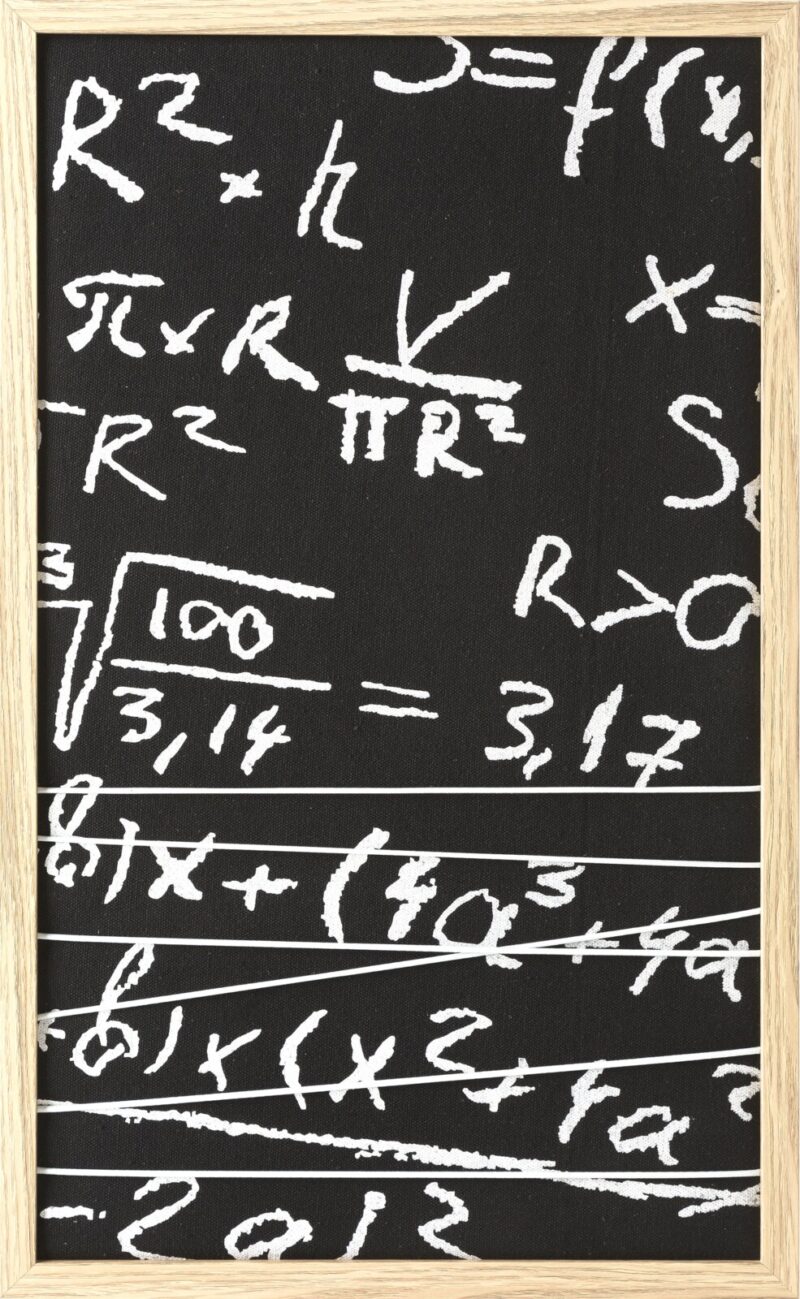 R² × h
S = f(x,
π × R
V / πR²
x =
R²
S
R > 0
³√(100 / 3,14) = 3,17
6)x + (4a³ + 4a
+ 6)x (x² + 4a²
- 2a